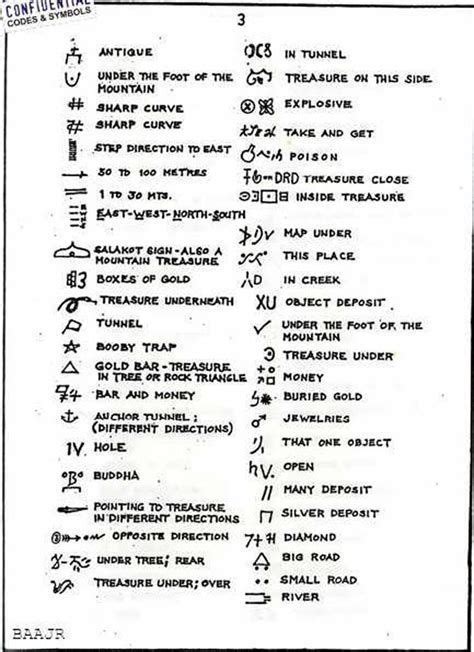 CONFIDENTIAL
CODES & SYMBOLS
3
ANTIQUE
UNDER THE FOOT OF THE
MOUNTAIN
SHARP CURVE
SHARP CURVE
STEP DIRECTION TO EAST
50 TO 100 METRES
1 TO 30 MTS.
EAST-WEST-NORTH-SOUTH
SALAKOT SIGN-ALSO A
MOUNTAIN TREASURE
BOXES OF GOLD
TREASURE UNDERNEATH
TUNNEL
BOOBY TRAP
GOLD BAR-TREASURE
IN TREE OR ROCK TRIANGLE
BAR AND MONEY
ANCHOR TUNNEL;
(DIFFERENT DIRECTIONS)
IV. HOLE
"B" BUDDHA
POINTING TO TREASURE
IN DIFFERENT DIRECTIONS
OPPOSITE DIRECTION
UNDER TREE; REAR
TREASURE UNDER; OVER
IN TUNNEL
TREASURE ON THIS SIDE
EXPLOSIVE
TAKE AND GET
POISON
DRD TREASURE CLOSE
INSIDE TREASURE
MAP UNDER
THIS PLACE
IN CREEK
XU OBJECT DEPOSIT
UNDER THE FOOT OF THE
MOUNTAIN
TREASURE UNDER
MONEY
BURIED GOLD
JEWELRIES
THAT ONE OBJECT
hV. OPEN
MANY DEPOSIT
SILVER DEPOSIT
DIAMOND
BIG ROAD
SMALL ROAD
RIVER
BAAJR